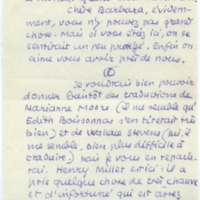 Chère Barbara, évidem-
ment, vous n'y pouvez pas grand'
chose. Mais si vous étiez ici, on se
sentirait un peu protégé. Enfin on
aime vous avoir près de nous.
Je voudrais bien pouvoir
donner bientôt des traductions de
Marianne Moore (il me semble qu'
Edith Boissonnas s'en tirerait très
bien) et de Wallace Stevens (qui, il
me semble, bien plus difficile à
traduire) mais je vous en reparle-
rai. Henry Miller est ici : il a
pris quelque chose de très chauve
et d'infortuné qui est assez